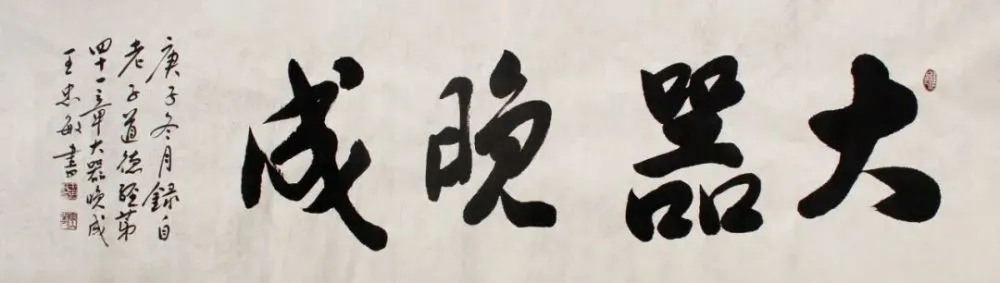 大器晚成
庚子冬月録自
老子道德经第
四十一章大器晚成
王忠敏書